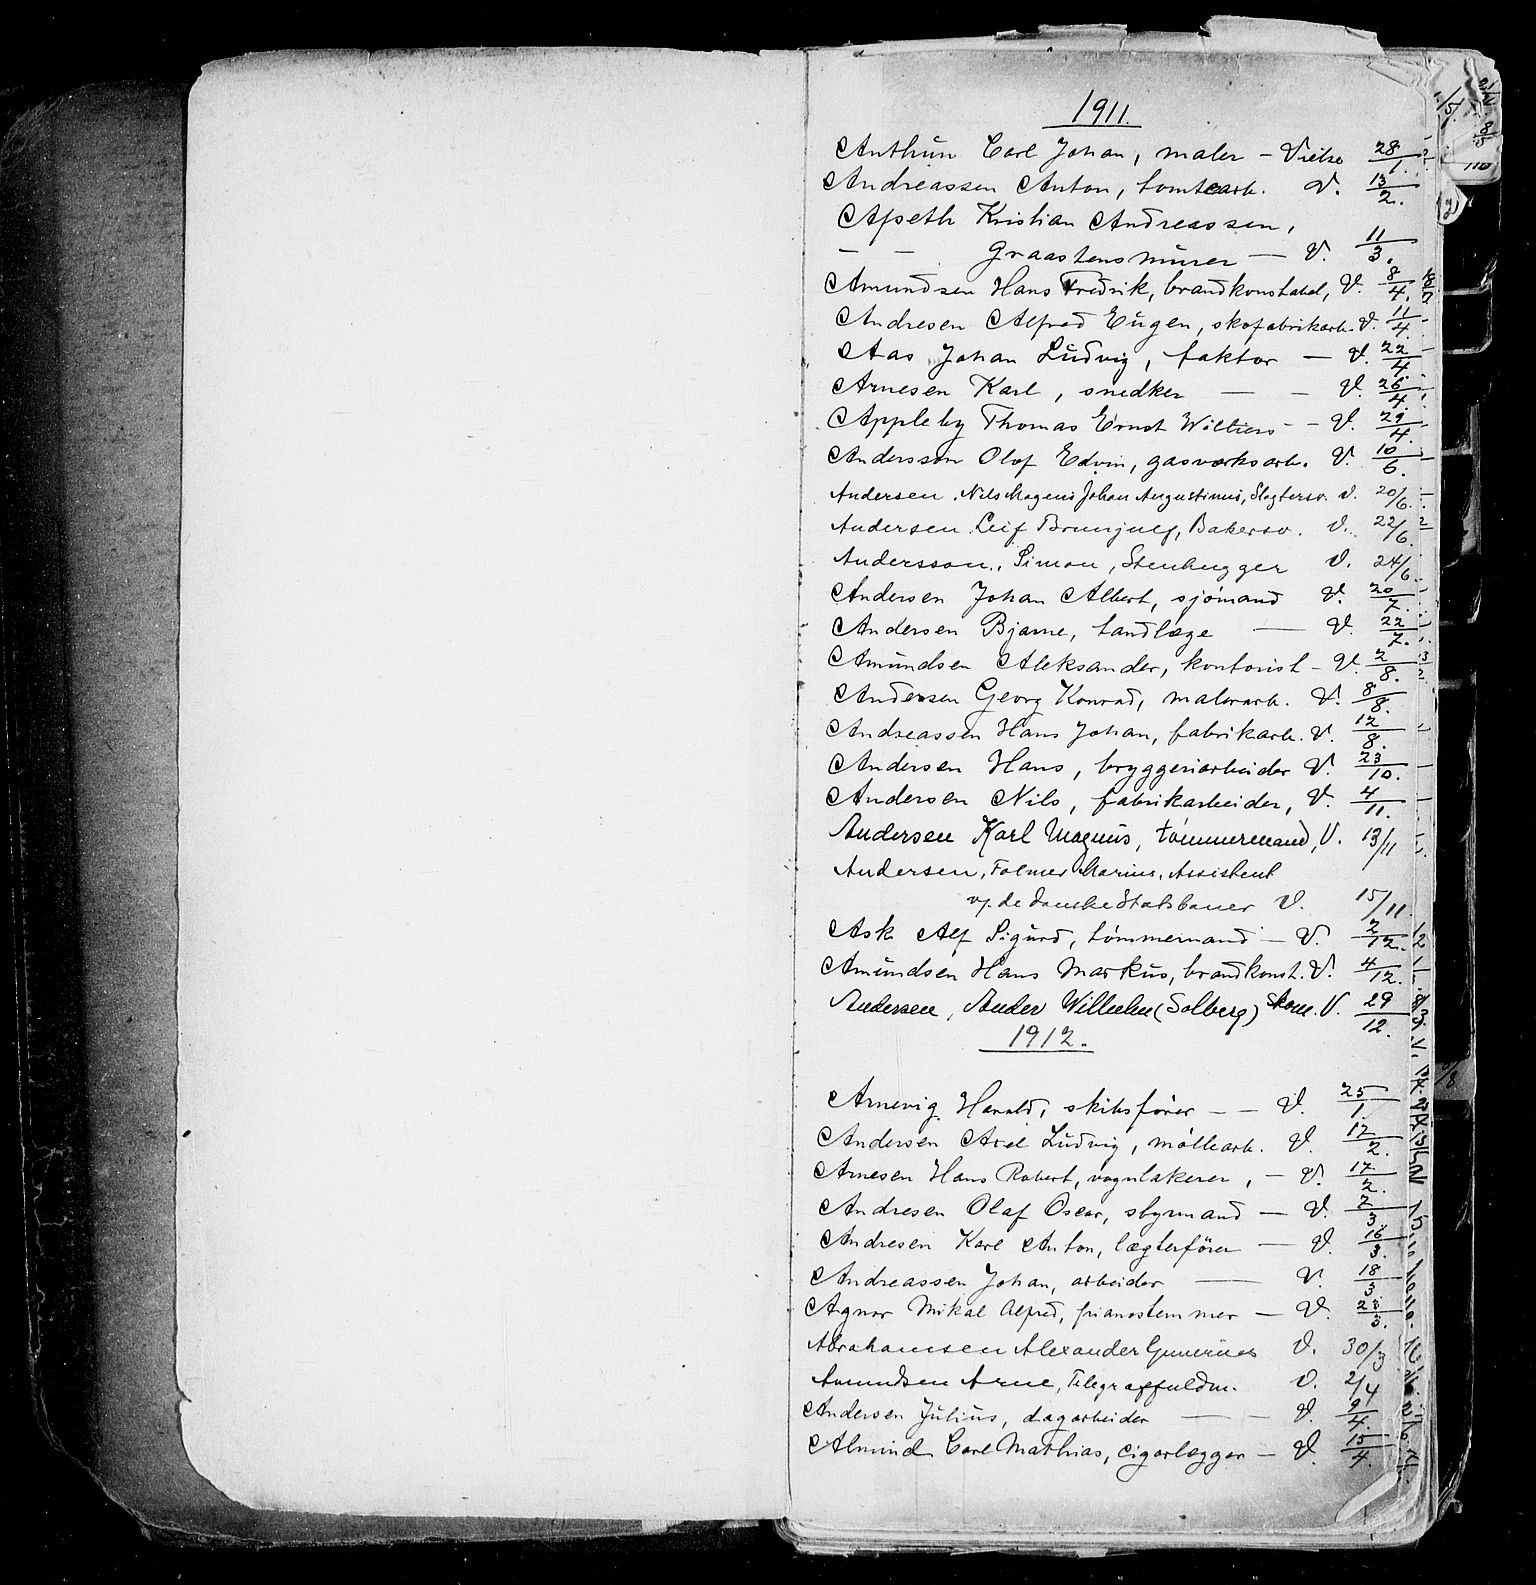 1911.
Anthun Carl Johan, maler – Vielse 28/1.
Andreassen Anton, tomtearb. V. 13/2.
Apseth Kristian Andreassen,
— — Graastensmurer — V. 11/3.
Amundsen Hans Fredrik, brandkonstabel, V. 8/4.
Andresen Alfred Eugen, skofabrikarb. V. 11/4.
Aas Johan Ludvig, faktor — V. 22/4.
Arnesen Karl, snedker — – V. 26/4.
Appleby Thomas Ernst – V. 29/4.
Andersson Olof Edvin, gasværksarb. V. 10/6.
Andersen, Nils Magnus Johan Augustinus, Slagtersv. V. 20/6.
Andersen Leif Brunjulf, Bakersv. V. 22/6.
Andersson, Simon, Stenhugger V. 24/6.
Andersen Johan Albert, sjømand V. 20/7.
Andersen Bjarne, tandlæge — V. 22/7.
Amundsen Aleksander, kontorist – V. 2/8.
Andersen Georg Konrad, malerarb. V. 8/8.
Andreassen Hans Johan, fabrikarb. V. 12/8.
Andersen Hans, bryggeriarbeider V. 23/10.
Andersen Nils, fabrikarbeider, V. 4/11.
Andersen Karl Magnus, tømmermand, V. 13/11
Andersen, Folmer Marius, Assistent
v. de danske Statsbaner V. 15/11.
Ask Alf Sigurd, tømmermand — V. 2/12.
Amundsen Hans Markus, brandkonst. V. 4/12.
Andersen, Ander Wilhelm (Solberg) V. 29/12.
1912.
Arnevig Harald, skibsfører – – V. 25/1.
Andersen Axel Ludvig, møllearb. V. 17/2.
Arnesen Hans Robert, vognlakerer, – V. 17/2.
Andresen Olaf Oscar, styrmand — V. 2/3.
Andresen Karl Anton, lægterfører — V. 16/3.
Andreassen Johan, arbeider — V. 18/3
Agnor Mikal Alfred, pianostemmer — V. 23/3.
Abrahamsen Alexander Gunerius V. 30/3
Amundsen Arne, Telegraffuldm. V. 2/4
Andersen Julius, dagarbeider — – V. 9/4.
Almind Carl Mathias, cigarlægger — V. 15/4.